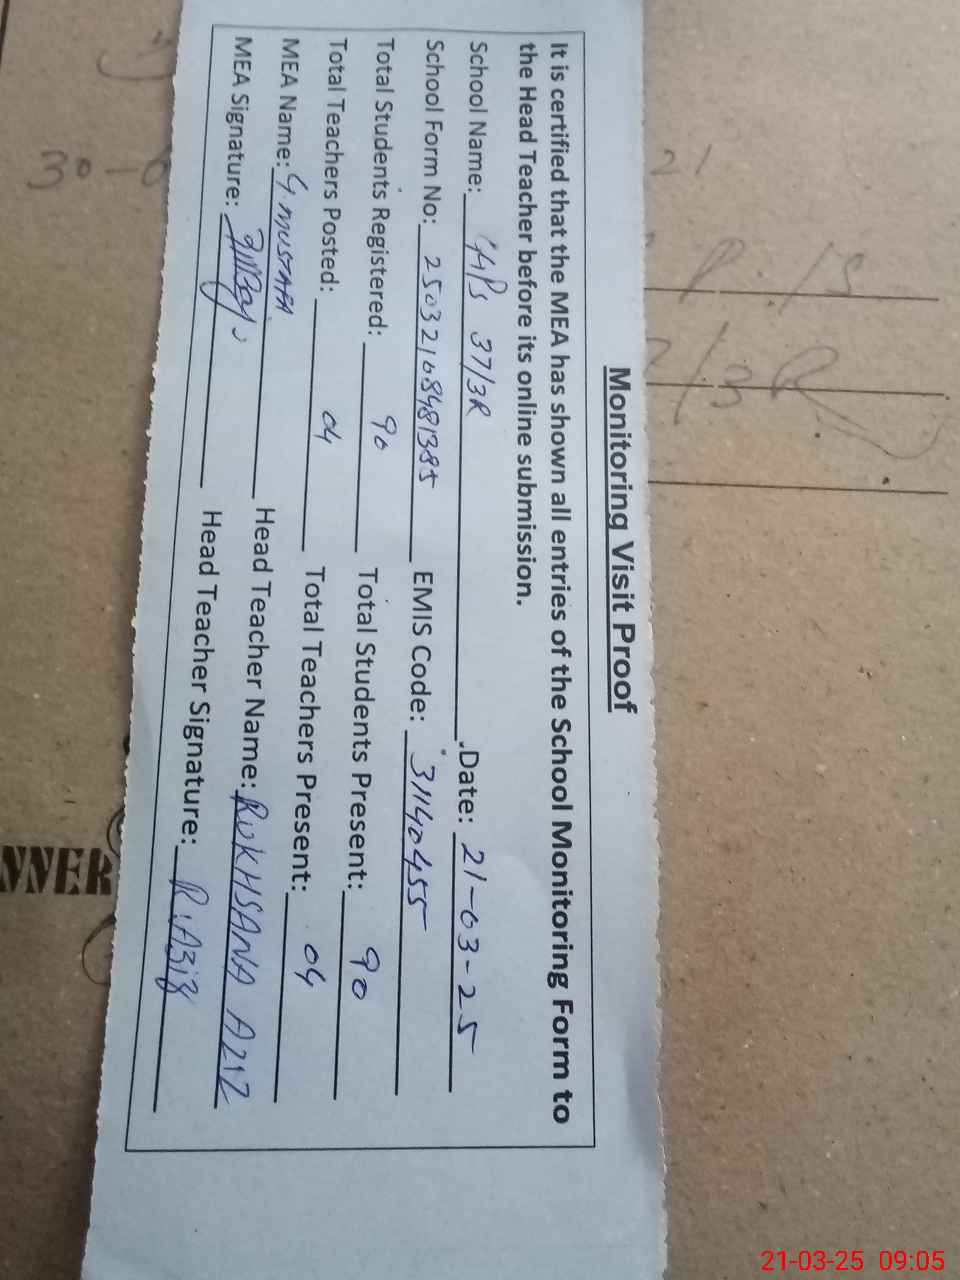 Monitoring Visit Proof
It is certified that the MEA has shown all entries of the School Monitoring Form to
the Head Teacher before its online submission.
School Name: GHPS 37/3R Date: 21-03-25
School Form No: 25032168481385 EMIS Code: 31140455
Total Students Registered: 90 Total Students Present: 90
Total Teachers Posted: 04 Total Teachers Present: 04
MEA Name: G. MUSTAFA Head Teacher Name: RUKHSANA AZIZ
MEA Signature: Head Teacher Signature: R.AZiZ
NNER
21-03-25 09:05